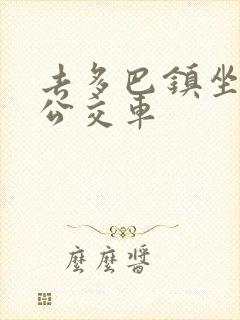 去多巴鎮坐
公交車
麼麼醬